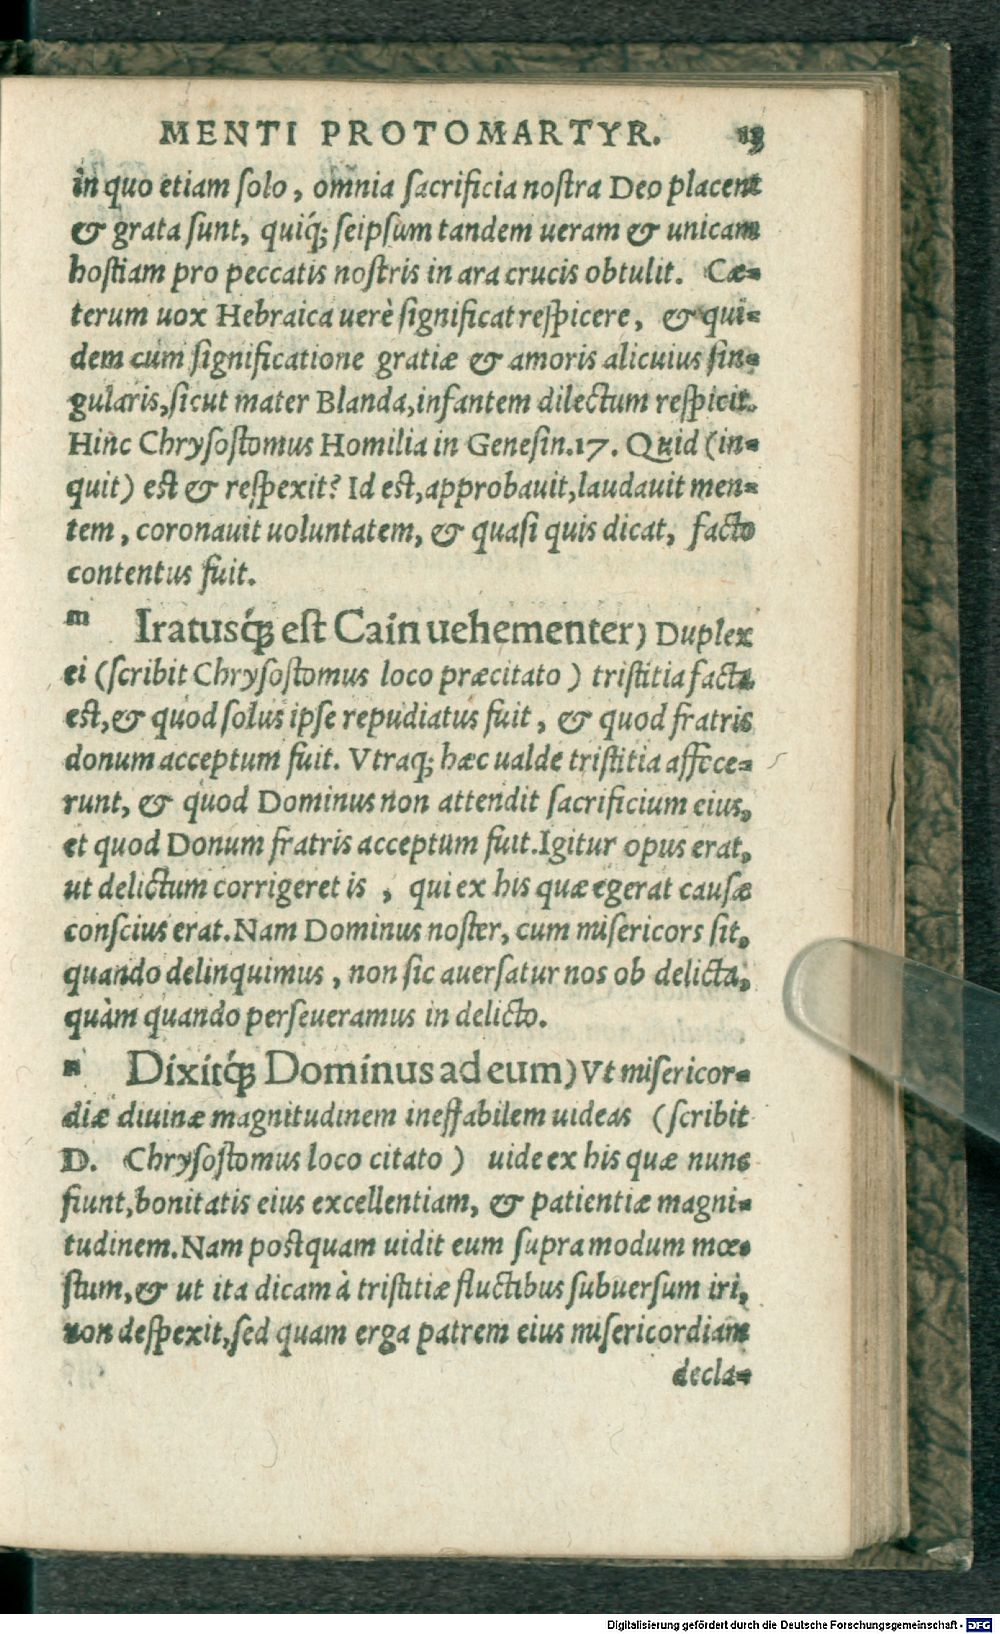 MENTI PROTOMARTYR. 13
in quo etiam ſolo, omnia ſacrificia noſtra Deo placent
& grata ſunt, quiq́; ſeipſum tandem ueram & unicam
hoſtiam pro peccatis noſtris in ara crucis obtulit. Cæ-
terum uox Hebraica uerè ſignificat reſpicere, & qui-
dem cum ſignificatione gratiæ & amoris alicuius ſin-
gularis, ſicut mater Blanda, infantem dilectum reſpicit.
Hinc Chryſoſtomus Homilia in Geneſin. 17. Quid (in-
quit) eſt & reſpexit? Id eſt, approbauit, laudauit men-
tem, coronauit uoluntatem, & quaſi quis dicat, facto
contentus fuit.
m Iratusq́; eſt Cain uehementer) Duplex
ei (ſcribit Chryſoſtomus loco præcitato) triſtitia facta
eſt, & quòd ſolus ipſe repudiatus fuit, & quod fratris
donum acceptum fuit. Vtraq; hæc ualde triſtitia affece-
runt, & quòd Dominus non attendit ſacrificium eius,
et quod Donum fratris acceptum fuit. Igitur opus erat,
ut delictum corrigeret is, qui ex his quæ egerat cauſæ
conſcius erat. Nam Dominus noſter, cum miſericors ſit,
quando delinquimus, non ſic auerſatur nos ob delicta,
quàm quando perſeueramus in delicto.
n Dixitq́; Dominus ad eum) Vt miſericor-
diæ diuinæ magnitudinem ineffabilem uideas (ſcribit
D. Chryſoſtomus loco citato) uide ex his quæ nunc
fiunt, bonitatis eius excellentiam, & patientiæ magni-
tudinem. Nam poſtquam uidit eum ſupra modum mœ-
ſtum, & ut ita dicam à triſtitiæ fluctibus ſubuerſum iri,
non deſpexit, ſed quam erga patrem eius miſericordiam
decla-
Digitalisierung gefördert durch die Deutsche Forschungsgemeinschaft - DFG